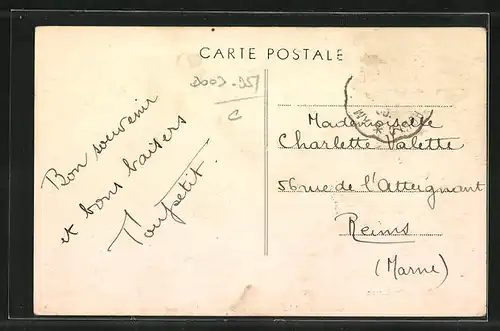 CARTE POSTALE
C
Bon souvenir
et bons baisers
Toupetit.
Mademoiselle
Charlette Valette
56 rue de l'Atteignant
Reims
(Marne)